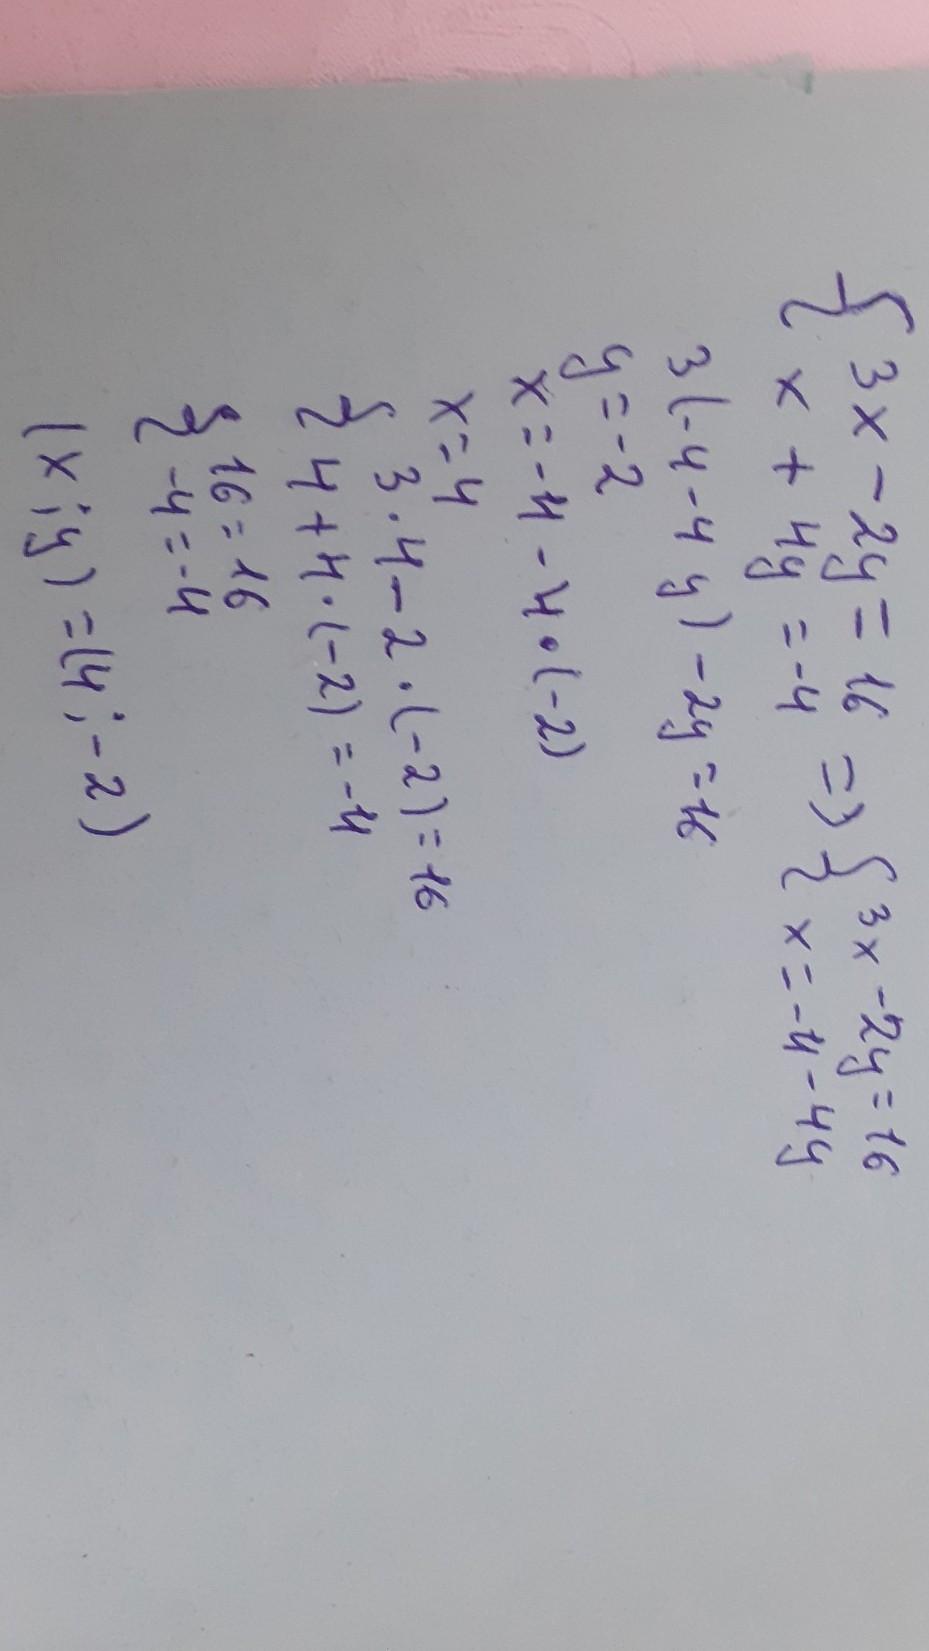 { 3x - 2y = 16 => { 3x - 2y = 16
x + 4y = -4 x = -4 - 4y
3(-4 - 4y) - 2y = 16
y = -2
x = -4 - 4 · (-2)
x = 4
{ 3 · 4 - 2 · (-2) = 16
4 + 4 · (-2) = -4
{ 16 = 16
-4 = -4
(x; y) = (4; -2)